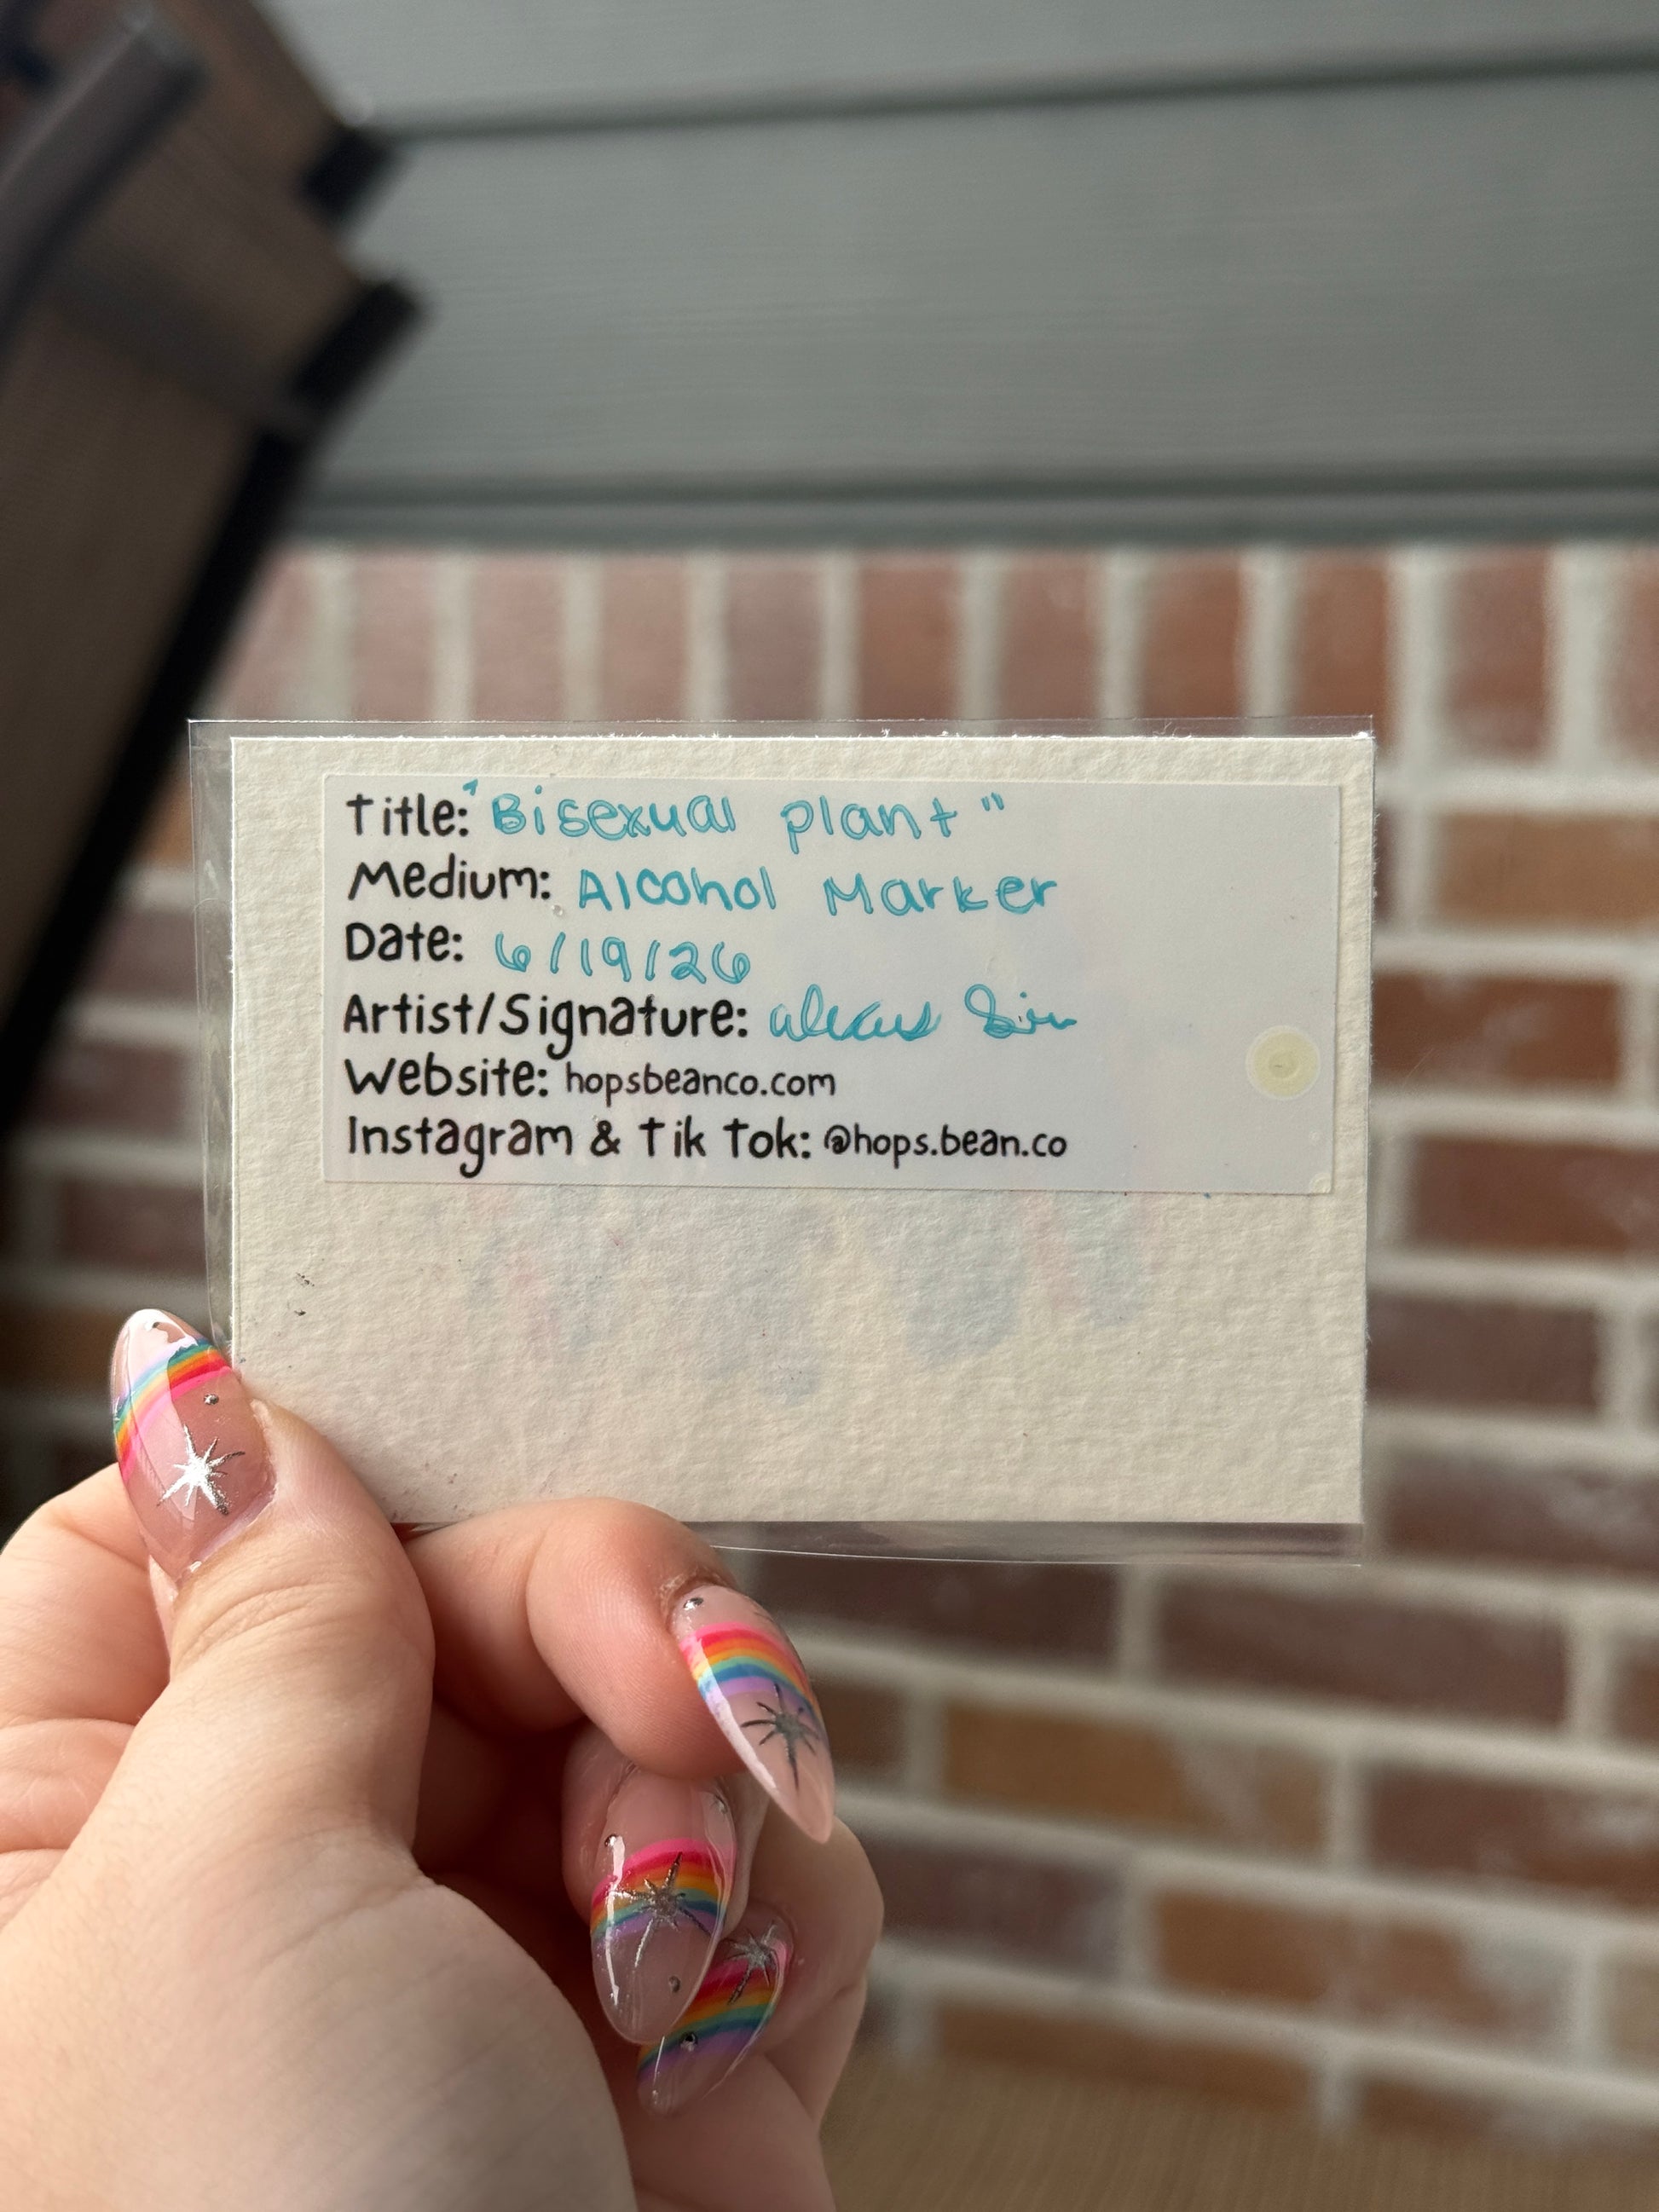 Title: "Bisexual plant"
Medium: Alcohol Marker
Date: 6/19/26
Artist/Signature:
Website: hopsbeanco.com
Instagram & Tik Tok: @hops.bean.co